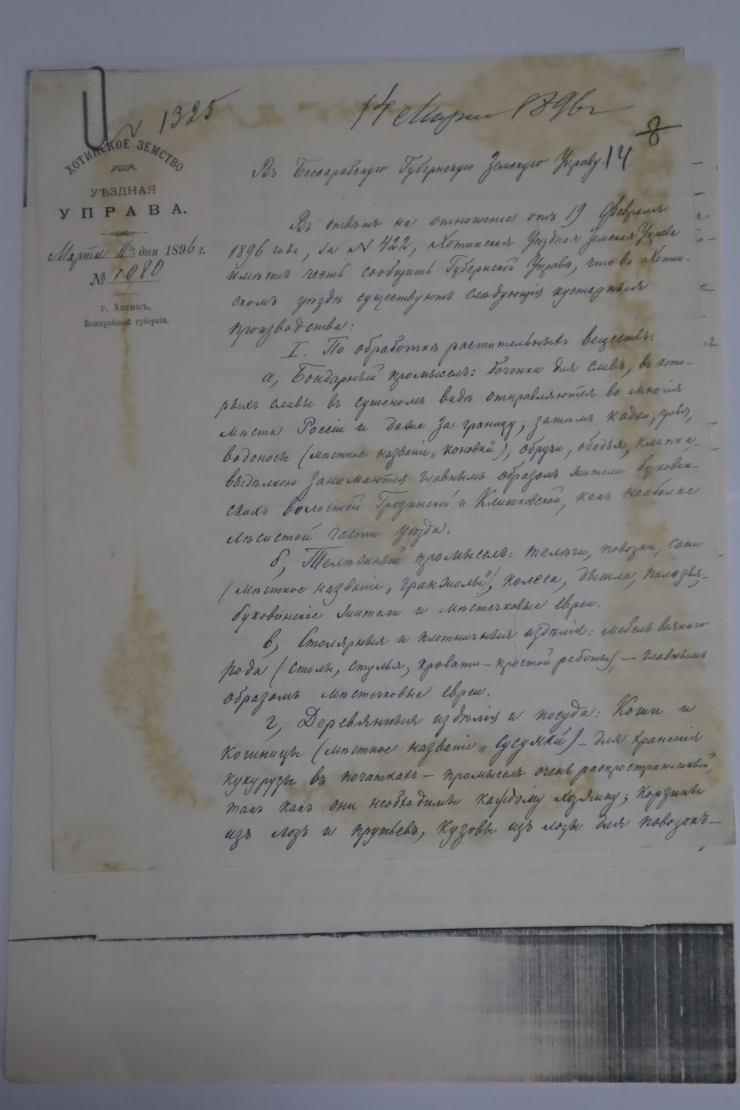 № 1325
14 Марта 1896 г
8
ХОТИНСКОЕ ЗЕМСТВО
УѢЗДНАЯ
УПРАВА.
Марта 11 дня 1896 г.
№ 1080
г. Хотинъ,
Бессарабской губерніи.
Въ Бессарабскую Губернскую Земскую Управу. 14
Въ отвѣтъ на отношеніе отъ 19 Февраля
1896 года, за № 422, Хотинская Уѣздная Земская Управа
имѣетъ честь сообщить Губернской Управѣ, что въ Хотин-
скомъ уѣздѣ существуютъ слѣдующія кустарныя
производства:
I. По обработкѣ растительныхъ веществъ:
а, Бондарный промыселъ: боченки для сливъ, въ кото-
рыхъ сливы въ сушеномъ видѣ отправляются во многія
мѣста Россіи и даже за границу; затѣмъ кадки,
водоносы (мѣстное названіе, коновки), обручи, ободья, клепка,
выдѣлкою занимаются главнымъ образомъ жители буковин-
скихъ волостей Грозинской и Клишковской, какъ наиболѣе
лѣсистой части уѣзда.
б, Телѣжный промыселъ: телѣги, повозки, сани
(мѣстное названіе „гранжолы"), колеса, дышла, полозья,
буковинскіе жители и мѣстечковые евреи.
в, Столярныя и плотничныя издѣлія: мебель всякаго
рода (столы, стулья, кровати – простой работы), – главнымъ
образомъ мѣстечковые евреи.
г, Деревянныя издѣлія и посуда: Коши и
кошницы (мѣстное названіе „Сусуяки") – для храненія
кукурузы въ початкахъ – промыселъ очень распространенный,
такъ какъ они необходимы каждому хозяину; корзины
изъ лозъ и прутьевъ, кузовы изъ лозы для повозокъ –